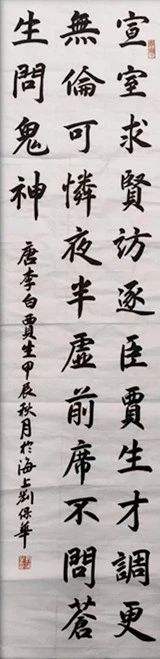 宣室求賢訪逐臣賈生才調更
無倫可憐夜半虛前席不問蒼
生問鬼神
唐李白賈生甲辰秋月於海上劉保華